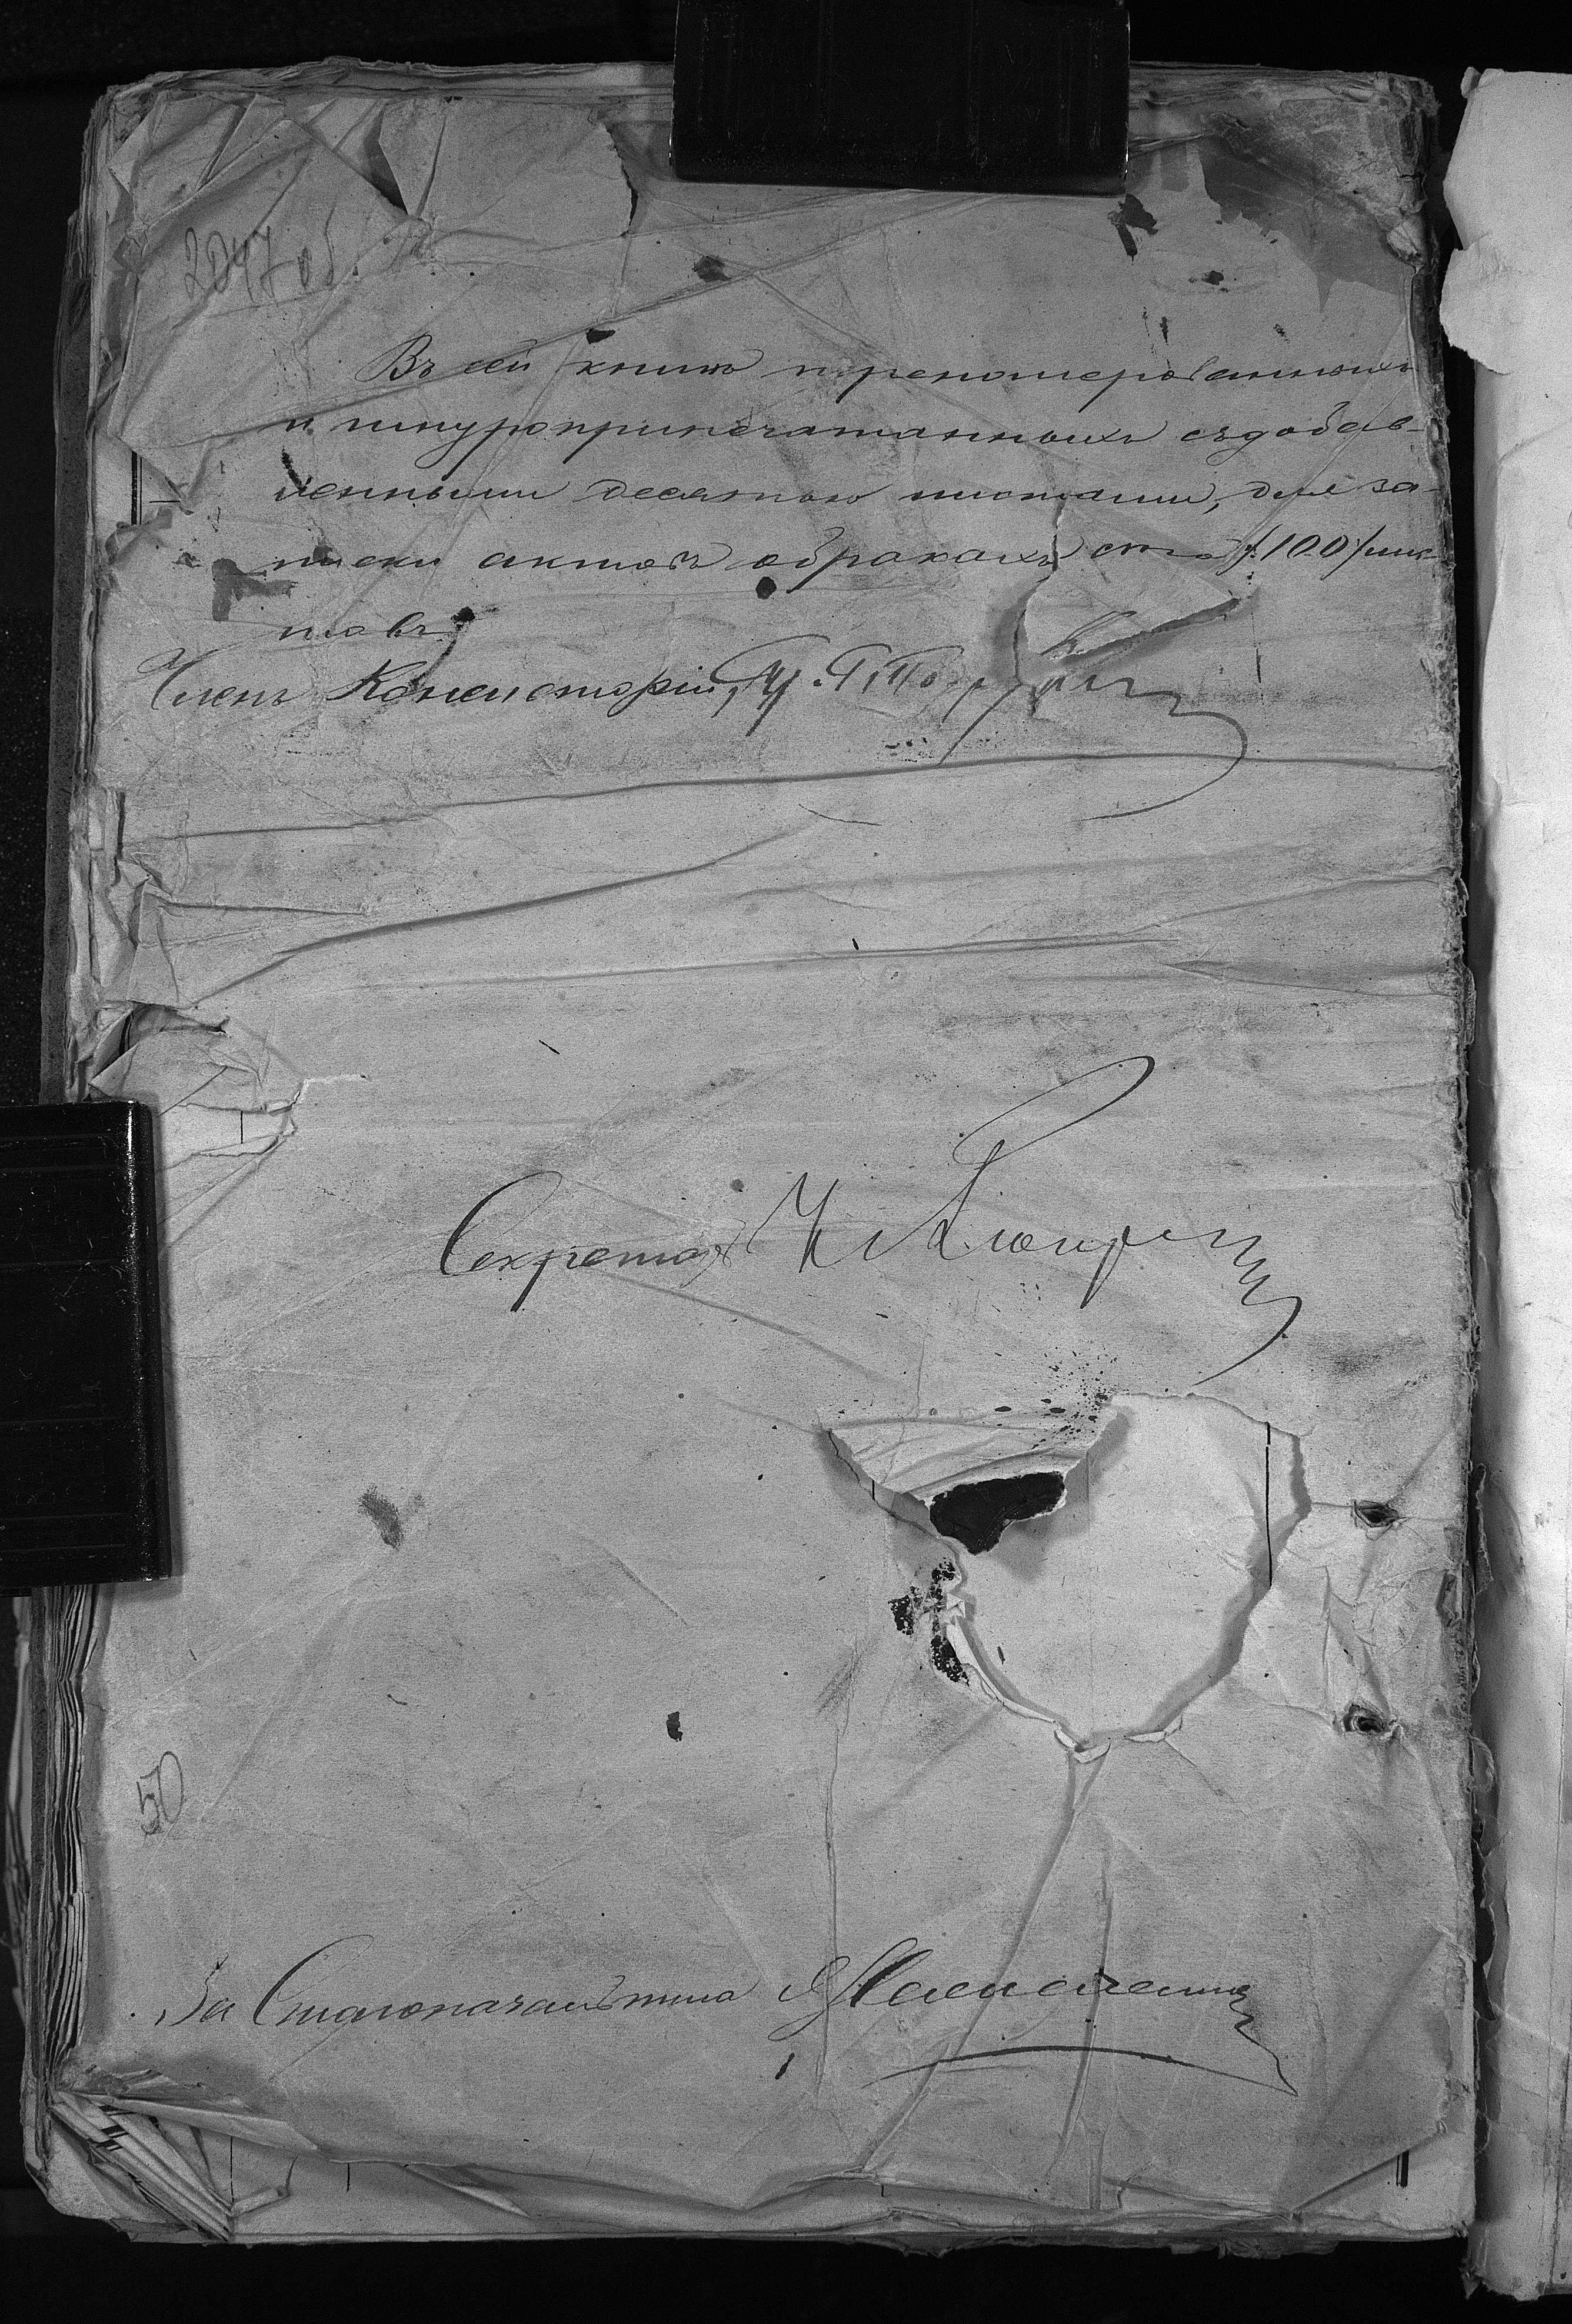 2047 об.
Въ сей книгѣ переномерованныхъ
и шнуроприпечатанныхъ съ добав-
ленными десятью листами, для за-
писки актовъ о бракахъ сто /100/ лис-
товъ
Членъ Консисторіи,
Секретарь
50
За Столоначальника